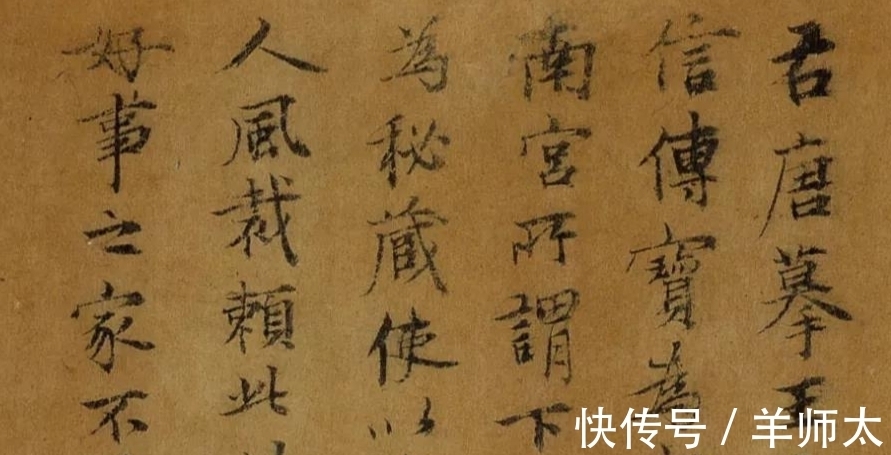 君唐摹王
信傳寶為
南宮所謂下
為秘藏使以
人風裁賴此
好事之家不
快传号 / 羊师太